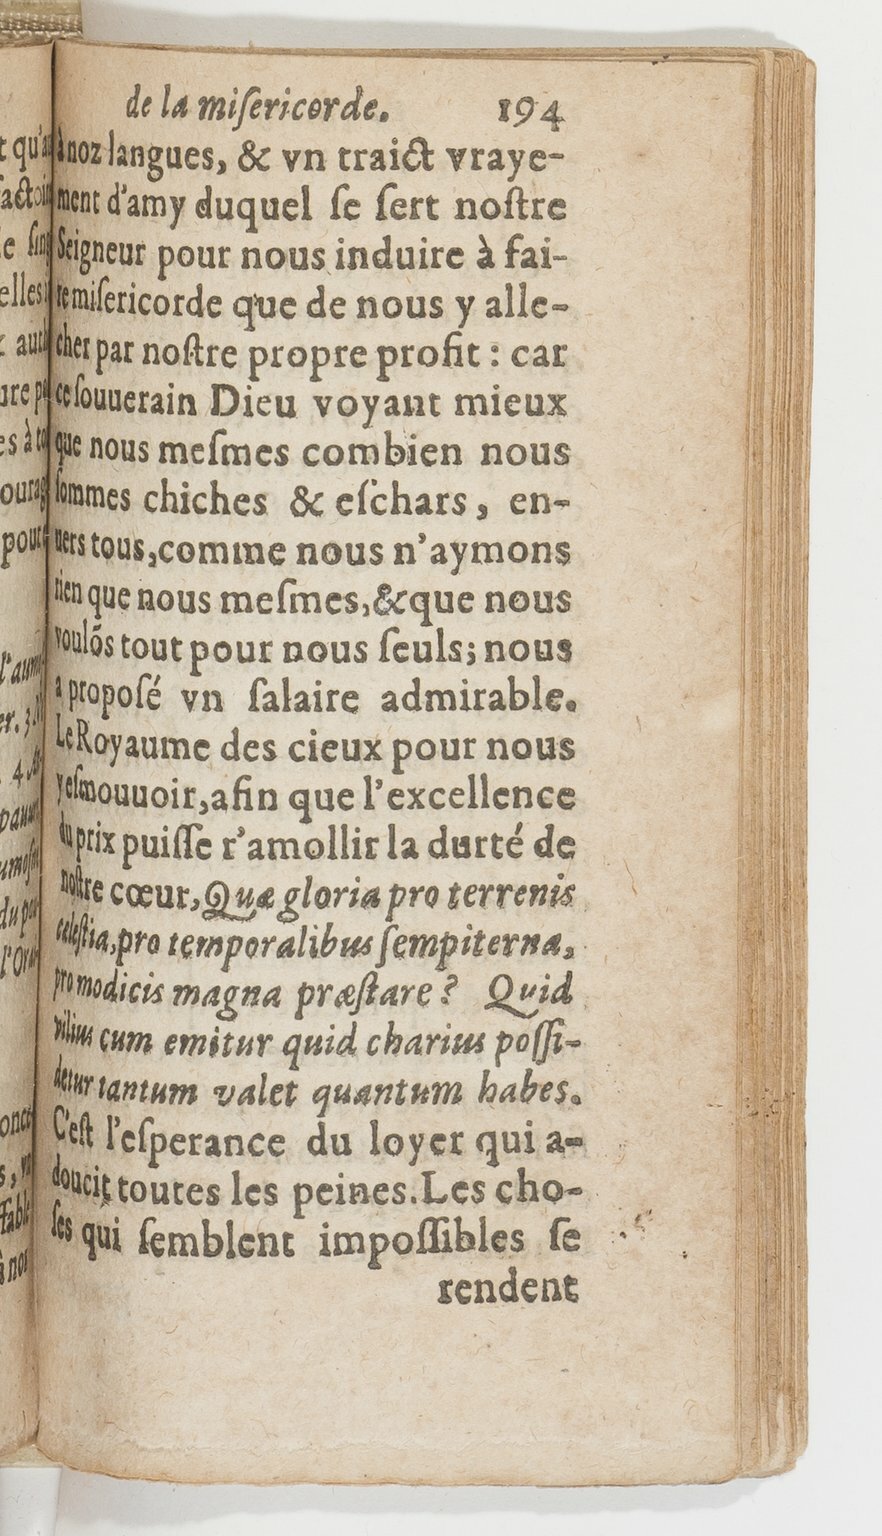 de la miſericorde. 194
à noz langues, & vn traict vraye-
ment d'amy duquel ſe ſert noſtre
Seigneur pour nous induire à fai-
re miſericorde que de nous y alle-
cher par noſtre propre profit : car
ce ſouuerain Dieu voyant mieux
que nous meſmes combien nous
ſommes chiches & eſchars, en-
uers tous, comme nous n'aymons
rien que nous meſmes, & que nous
voulõs tout pour nous ſeuls; nous
a propoſé vn ſalaire admirable.
Le Royaume des cieux pour nous
y eſmouuoir, afin que l'excellence
du prix puiſſe r'amollir la durté de
noſtre cœur, Quæ gloria pro terrenis
celeſtia, pro temporalibus ſempiterna,
pro modicis magna præſtare? Quid
vilius cum emitur quid charius poſſi-
detur tantum valet quantum habes.
C'eſt l'eſperance du loyer qui a-
doucit toutes les peines. Les cho-
ſes qui ſemblent impoſſibles ſe
rendent